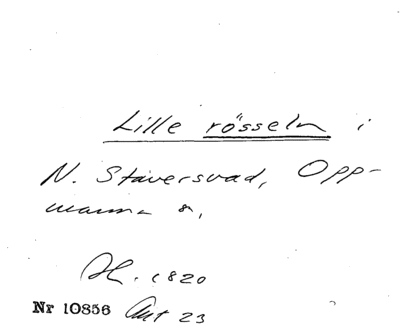 Lille rösseln i
N. Staversvad, Opp-
manna s,
H. 1820
Nr 10856 Ant 23